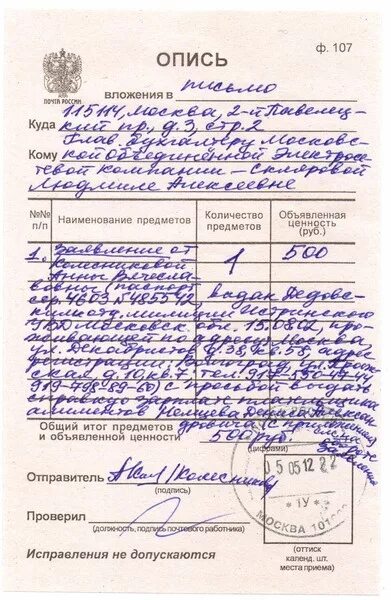 ф. 107
ПОЧТА РОССИИ
ОПИСЬ
вложения в письмо
115114, Москва, 2-й Павелец-
Куда кий пр., д.3, стр.2
Глав. бухгалтеру Московс-
Кому кой Объединенной Электросе-
тевой компании – Скляровой
Людмиле Алексеевне
№№ п/п Наименование предметов Количество предметов Объявленная ценность (руб.)
1. Заявление от 1 500
Колесниковой
Анны Вячесла-
вовны (паспорт
сер. 4603 № 485542, выдан Дедовс-
ким гор. милиции Истринского
УВД Московск. обл. 15.08.02, про-
живающей по адресу: Москва
ул. Декабристов, д.38, кв.58, адрес
регистрации:
д.10, кв.67. тел.
919-798-89-60) с просьбой выдать
справку о зарплате плательщика
алиментов Немцева Дениса Алексан-
дровича (с приложением
Общий итог предметов
и объявленной ценности 500 руб.
(цифрами)
Отправитель Колесникова
(подпись)
Проверил
(должность, подпись почтового работника)
Исправления не допускаются
05 05 12 22
* 1У *
МОСКВА 101000
(оттиск
календ. шт.
места приема)